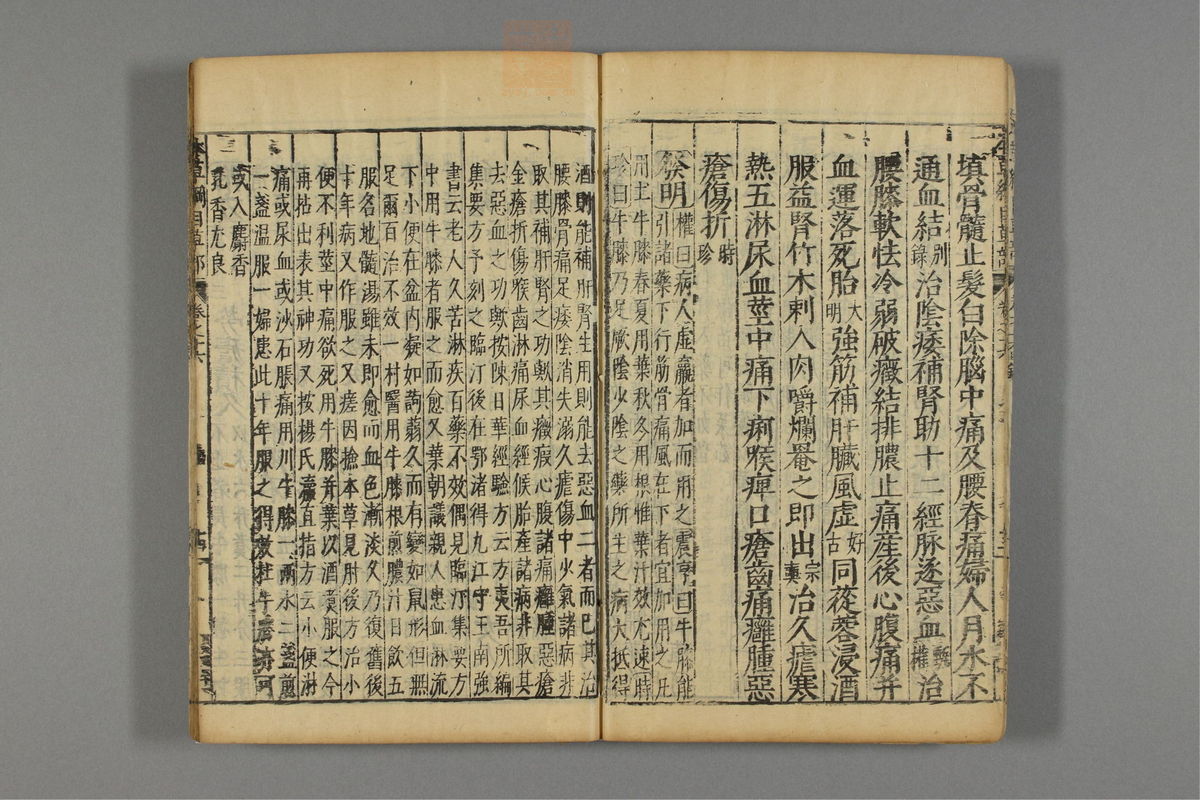 填骨髓止髮白除腦中痛及腰脊痛婦人月水不
通血結別錄治陰痿補腎助十二經脉逐惡血甄權治
腰膝軟怯冷弱破癥結排膿止痛産後心腹痛并
血運落死胎大明強筋補肝臟風虛好古同蓯蓉浸酒
服益腎竹木刺入肉嚼爛罨之即出宗奭治久瘧寒
熱五淋尿血莖中痛下痢喉痺口瘡齒痛癰腫惡
瘡傷折時珍
發明權曰病人虛羸者加而用之震亨曰牛膝能
引諸藥下行筋骨痛風在下者宜加用之凡
用土牛膝春夏用葉秋冬用根惟葉汁效尤速時
珍曰牛膝乃足厥陰少陰之藥所主之病大抵得
酒則能補肝腎生用則能去惡血二者而已其治
腰膝骨痛足痿陰消失溺久瘧傷中少氣諸病非
取其補肝腎之功歟其癥瘕心腹諸痛癰腫惡瘡
金瘡折傷喉齒淋痛尿血經候胎產諸病非取其
去惡血之功歟按陳日華經驗方云方夷吾所編
集要方予刻之臨汀後在鄂渚得九江守王南強
書云老人久苦淋疾百藥不效偶見臨汀集要方
中用牛膝者服之而愈又葉朝議親人患血淋流
下小便在盆內凝如蒟蒻久而有變如鼠形但無
足爾百治不效一村醫用牛膝根煎膿汁日飲五
服名地髓湯雖未即愈而血色漸淡久乃復舊後
十年病又作服之又瘥因撿本草見肘後方治小
便不利莖中痛欲死用牛膝并葉以酒煮服之今
再拈出表其神功又按楊氏直指方云小便淋
痛或尿血或沙石脹痛用川牛膝一兩水二盞煎
一盞温服一婦患此十年服之得效杜牛膝亦可
或入麝香
乳香尤良
本草綱目草部 卷之十六